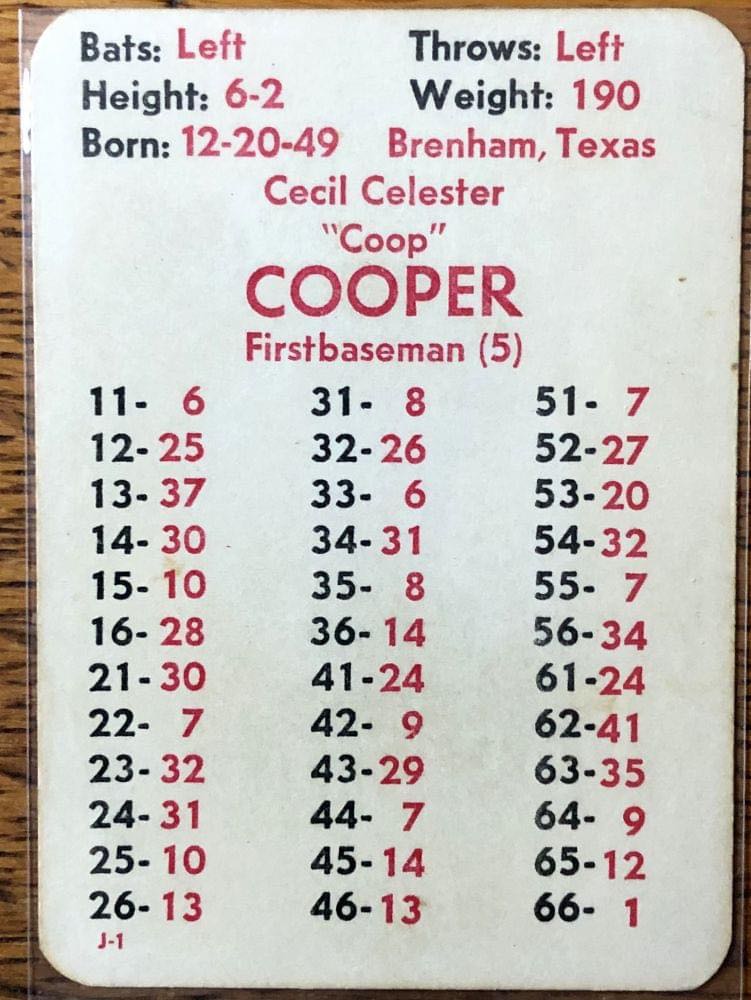 Bats: Left Throws: Left
Height: 6-2 Weight: 190
Born: 12-20-49 Brenham, Texas
Cecil Celester
"Coop"
COOPER
Firstbaseman (5)
11- 6 31- 8 51- 7
12-25 32-26 52-27
13-37 33- 6 53-20
14-30 34-31 54-32
15-10 35- 8 55- 7
16-28 36-14 56-34
21-30 41-24 61-24
22- 7 42- 9 62-41
23-32 43-29 63-35
24-31 44- 7 64- 9
25-10 45-14 65-12
26-13 46-13 66- 1
J-1